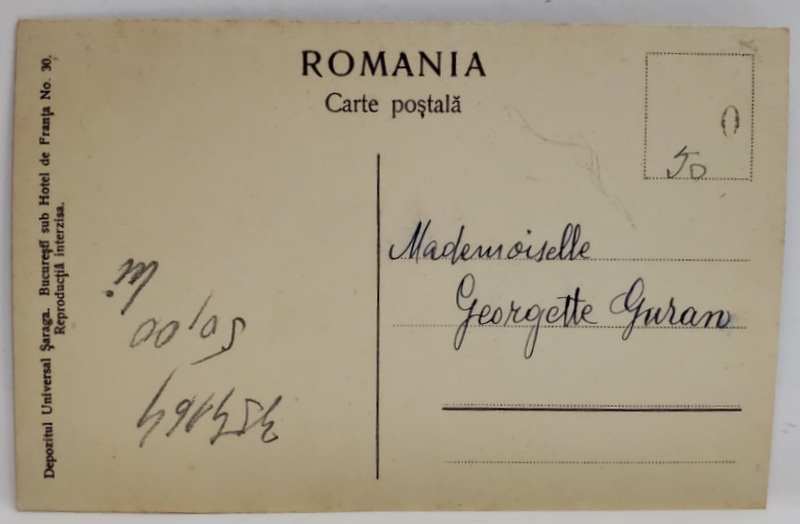 ROMANIA
Carte poștală
Depozitul Universal Șaraga. București sub Hotel de Franța No. 30.
Reproducția interzisa.
0
50
Mademoiselle
Georgette Guran
50,00
lei